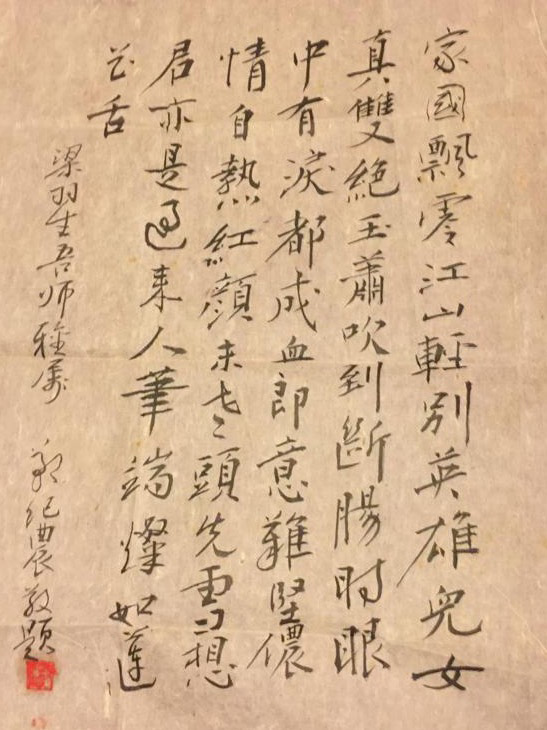 家國飄零江山輕別英雄兒女
真雙絕玉蕭吹到斷腸时眼
中有淚都成血郎意難堅儂
情自熱紅顏未老頭先雪想
君亦是過來人筆端燦如蓮
花舌
梁羽生吾师雅属
纪農敬題